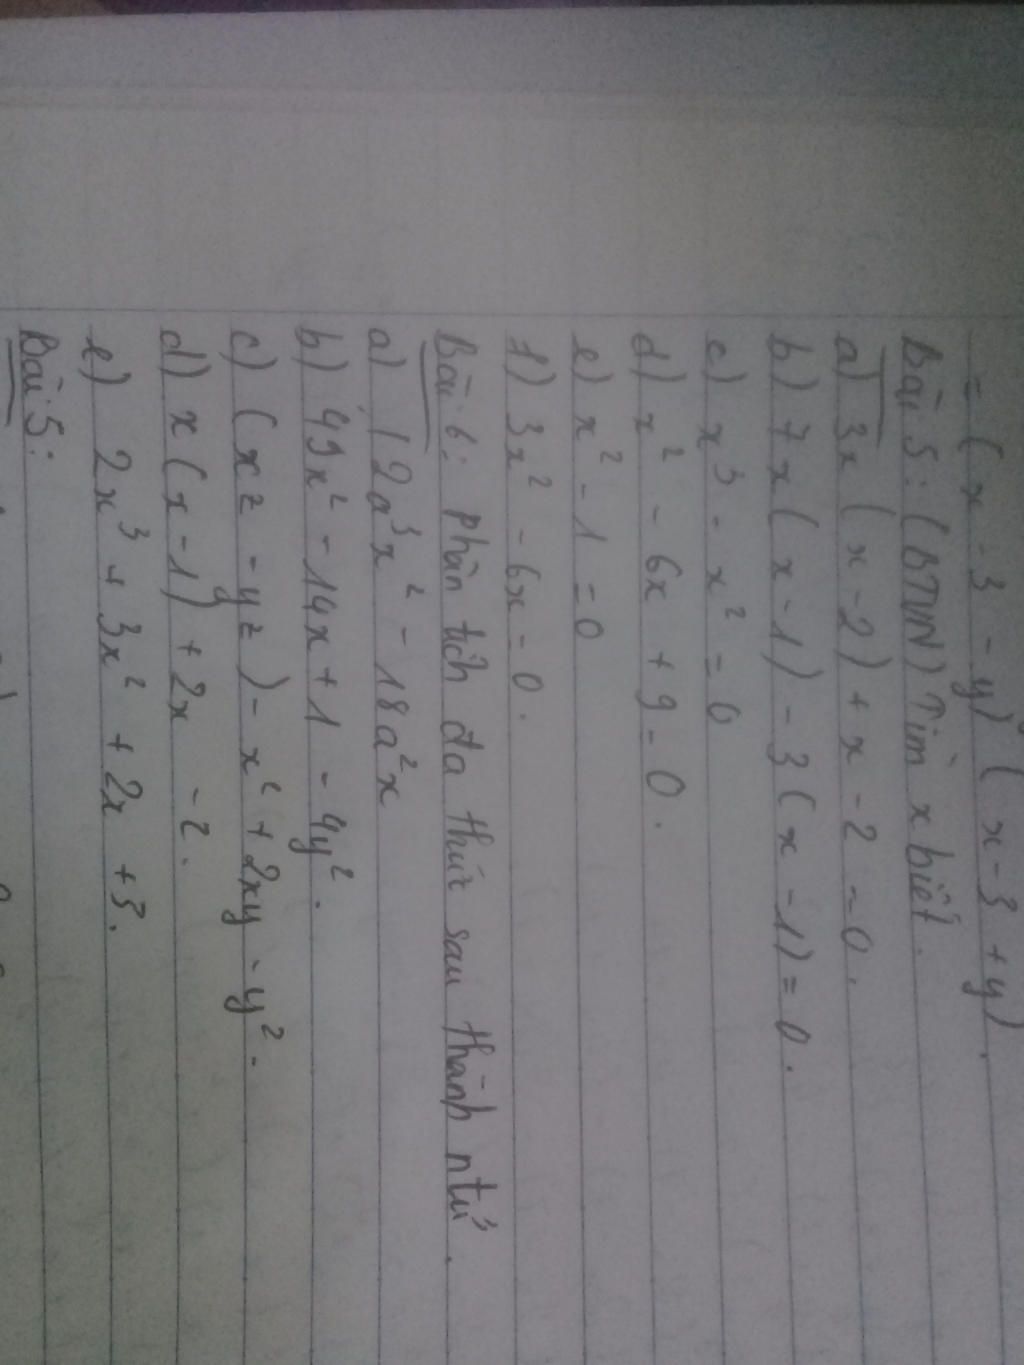 = (x - 3 - y) (x - 3 + y).
Bài 5: (BTVN) Tìm x biết.
a) 3x (x - 2) + x - 2 = 0.
b) 7x (x - 1) - 3 (x - 1) = 0.
c) x³ - x² = 0
d) x² - 6x + 9 = 0.
e) x² - 1 = 0
f) 3x² - 6x = 0.
Bài 6: phân tích đa thức sau thành ntử.
a) 12a³x² - 18a²x
b) 49x² - 14x + 1 - 4y².
c) (xz - yz) - x² + 2xy - y².
d) x (x - 1) + 2x - 2.
e) 2x³ + 3x² + 2x + 3.
Bài 5: